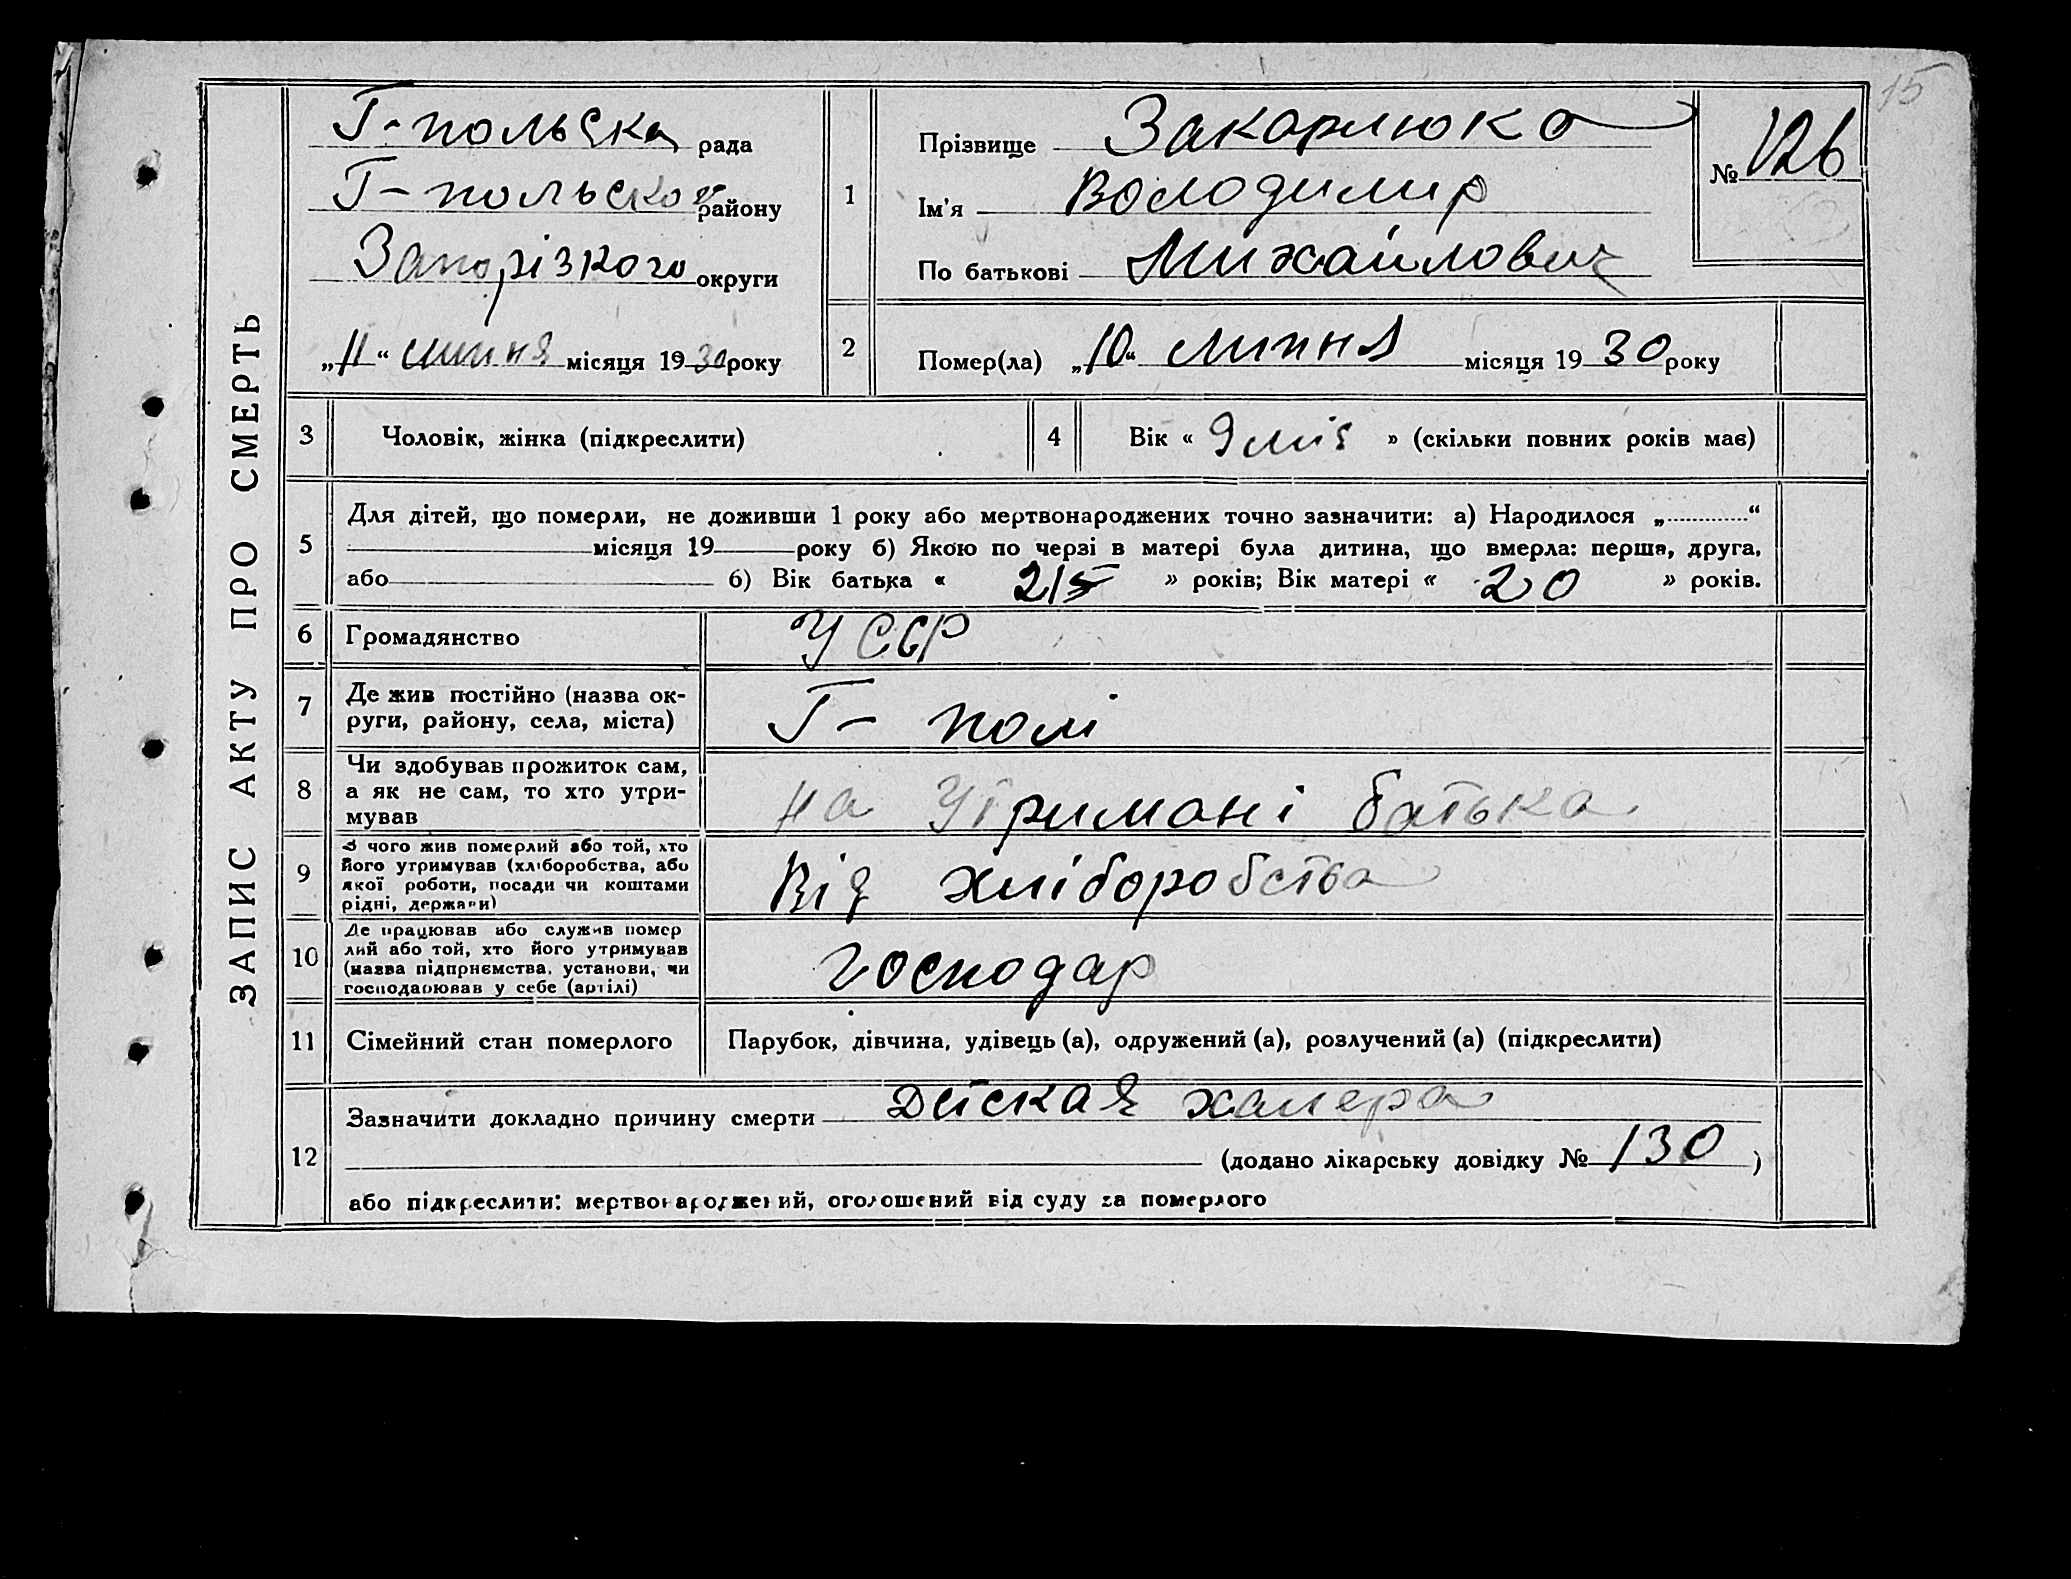 15
ЗАПИС АКТУ ПРО СМЕРТЬ
Г-польська рада
Г-польског району
Запорізкого округи
„11“ липня місяця 1930 року
1
Прізвище Закарлюка
Ім'я Володимир
По батькові Михайлович
№ 126
2
Помер(ла) „10“ липня місяця 1930 року
3 Чоловік, жінка (підкреслити)
4 Вік « 9 міс » (скільки повних років має)
5
Для дітей, що померли, не доживши 1 року або мертвонароджених точно зазначити: а) Народилося „ “
місяця 19 року б) Якою по черзі в матері була дитина, що вмерла: перша, друга,
або б) Вік батька « » років; Вік матері « 20 » років.
6 Громадянство УССР
7 Де жив постійно (назва ок-
руги, району, села, міста) Г- полі
8 Чи здобував прожиток сам,
а як не сам, то хто утри-
мував на Утримані батька
9 З чого жив померлий або той, хто
його утримував (хліборобства, або
якої роботи, посади чи коштами
рідні, держави) Від хліборобства
10 Де працював або служив помер
лий або той, хто його утримував
(назва підприємства, установи, чи
господарював у себе (артілі) господар
11 Сімейний стан померлого Парубок, дівчина, удівець (а), одружений (а), розлучений (а) (підкреслити)
12
Зазначити докладно причину смерти Дтская халера
(додано лікарську довідку № 130 )
або підкреслити: мертвонароджений, оголошений від суду за померлого